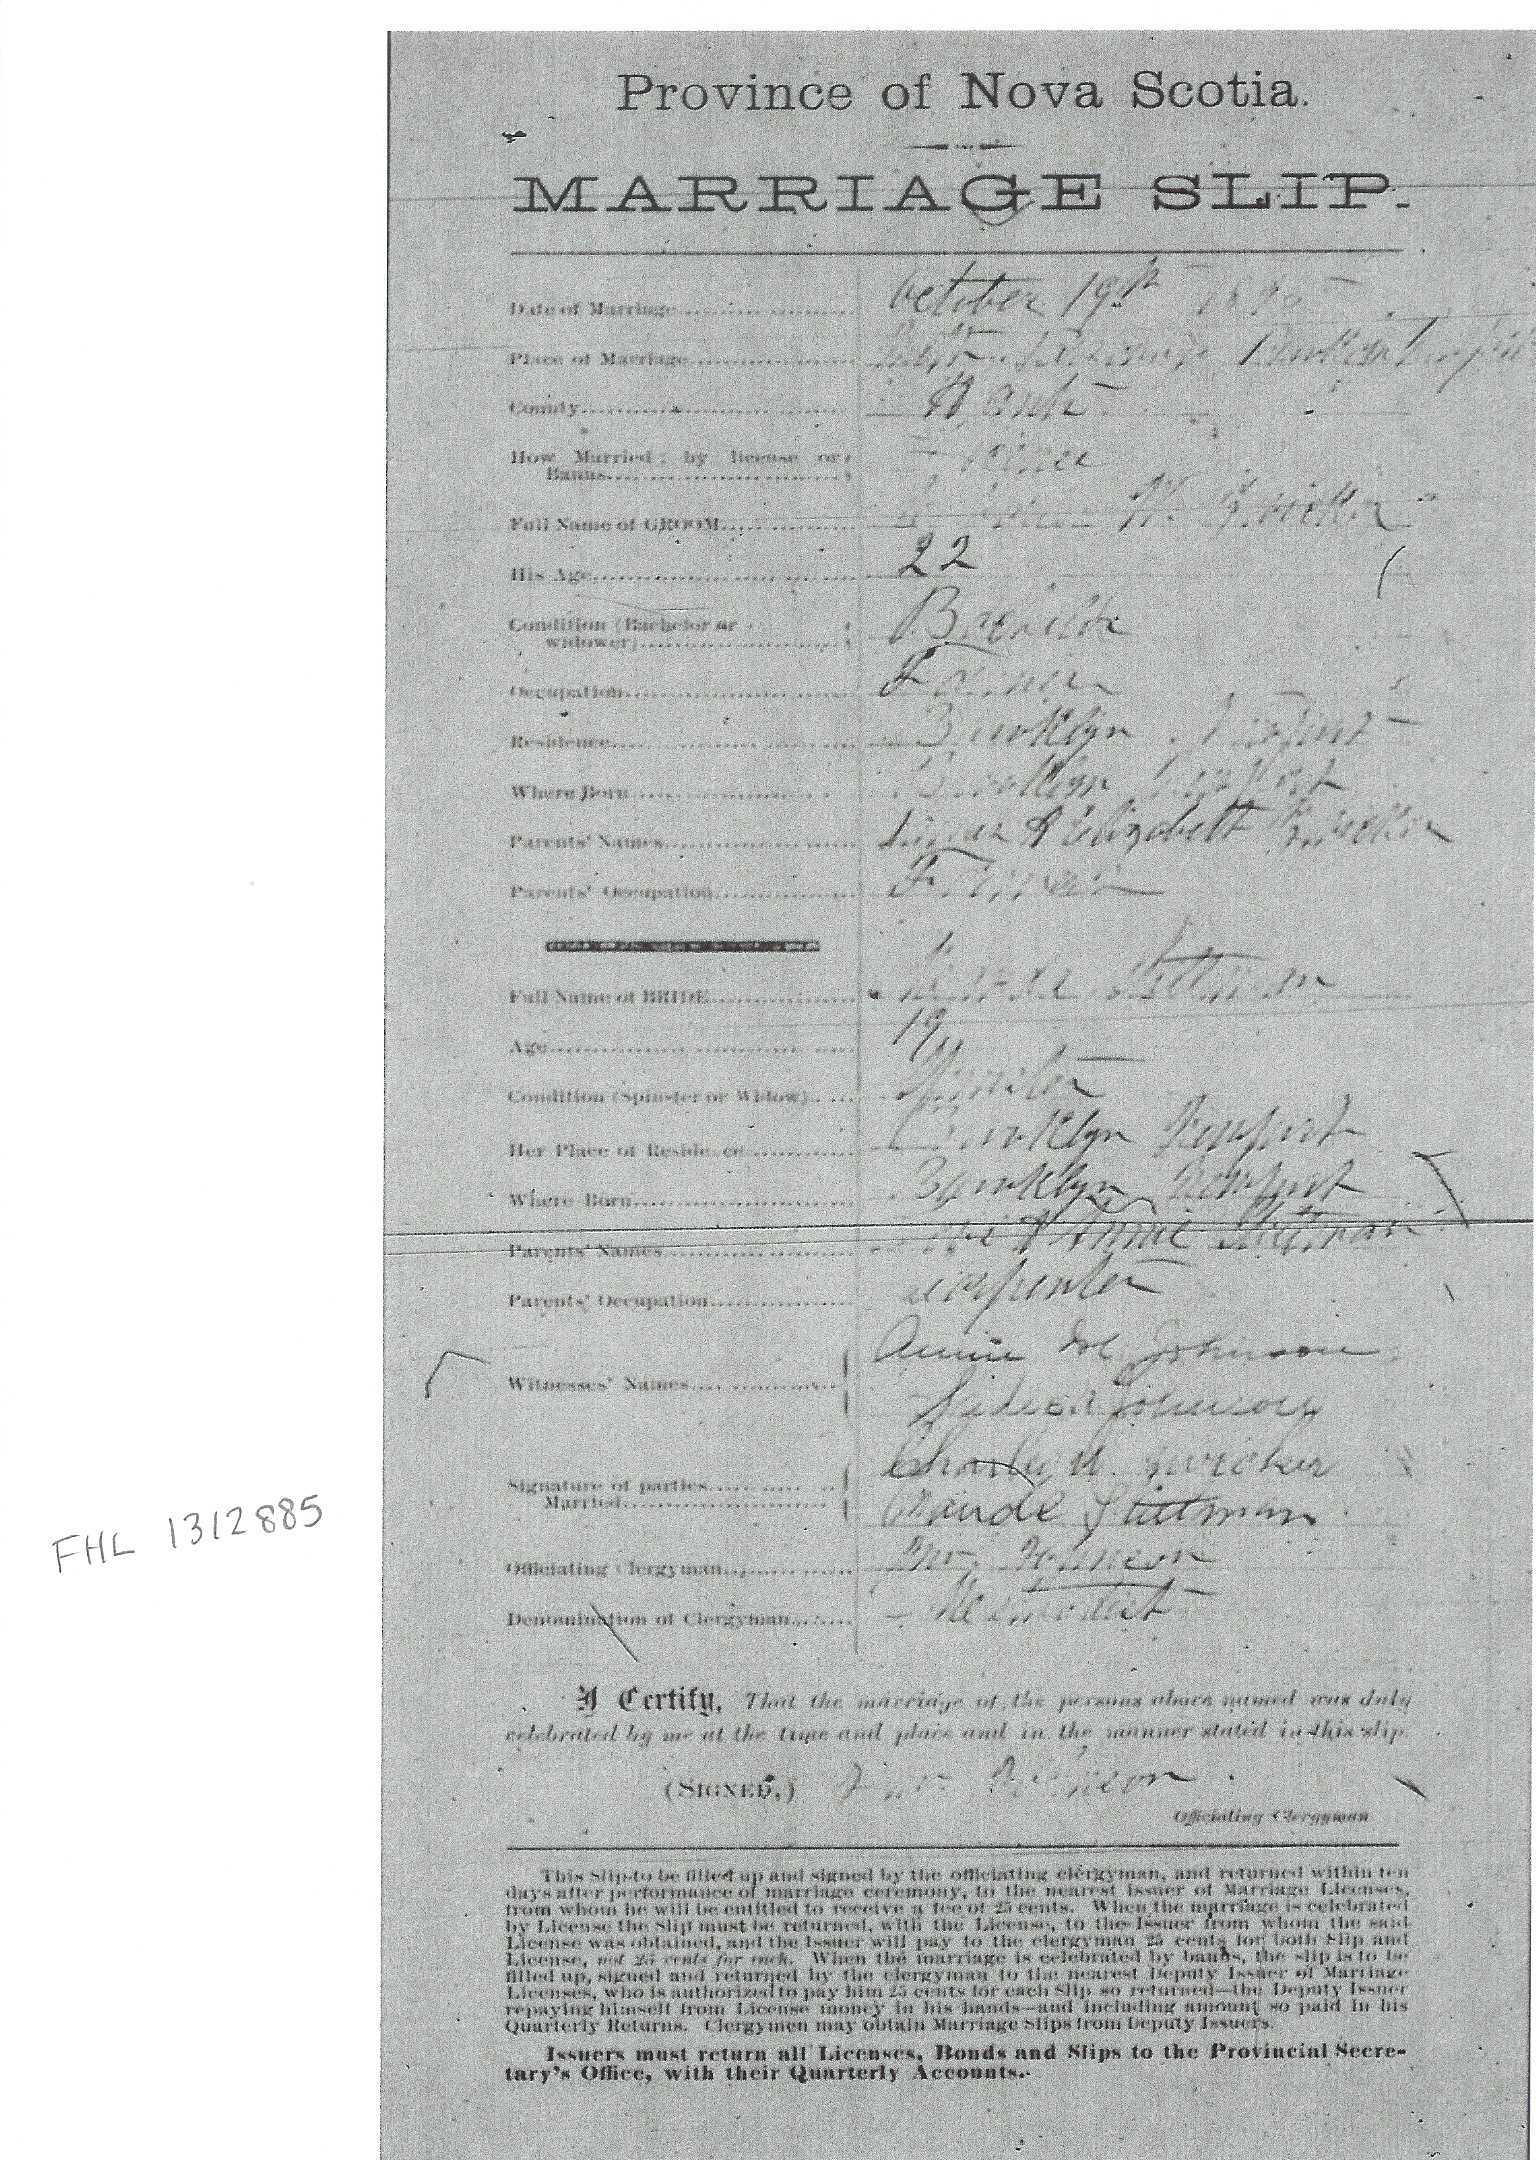 Province of Nova Scotia.
MARRIAGE SLIP.
Date of Marriage October 19th
Place of Marriage
County Hants
How Married: by license or
Banns
Full Name of GROOM W.
His Age 22
Condition (Bachelor or
widower)
Occupation Farmer
Residence Brooklyn Newport
Where Born Brooklyn Newport
Parents' Names & Elizabeth
Parents' Occupation Farmer
Full Name of BRIDE
Age 19
Condition (Spinster or Widow) Spinster
Her Place of Residence Brooklyn Newport
Where Born Brooklyn Newport
Parents' Names & Annie
Parents' Occupation Carpenter
Annie Johnson
Witnesses' Names
Johnson
Signature of parties W.
Married Maude
Officiating Clergyman Johnson
Denomination of Clergyman Methodist
I Certify, That the marriage of the persons above named was duly
celebrated by me at the time and place and in the manner stated in this slip.
(SIGNED,) Johnson
Officiating Clergyman
FHL 1312885
This Slip to be filled up and signed by the officiating clergyman, and returned within ten
days after performance of marriage ceremony, to the nearest Issuer of Marriage Licenses,
from whom he will be entitled to receive a fee of 25 cents. When the marriage is celebrated
by License the Slip must be returned, with the License, to the Issuer from whom the said
License was obtained, and the Issuer will pay to the clergyman 25 cents for both Slip and
License, not 25 cents for each. When the marriage is celebrated by banns, the slip is to be
filled up, signed and returned by the clergyman to the nearest Deputy Issuer of Marriage
Licenses, who is authorized to pay him 25 cents for each Slip so returned—the Deputy Issuer
repaying himself from License money in his hands—and including amount so paid in his
Quarterly Returns. Clergymen may obtain Marriage Slips from Deputy Issuers.
Issuers must return all Licenses, Bonds and Slips to the Provincial Secre-
tary's Office, with their Quarterly Accounts.